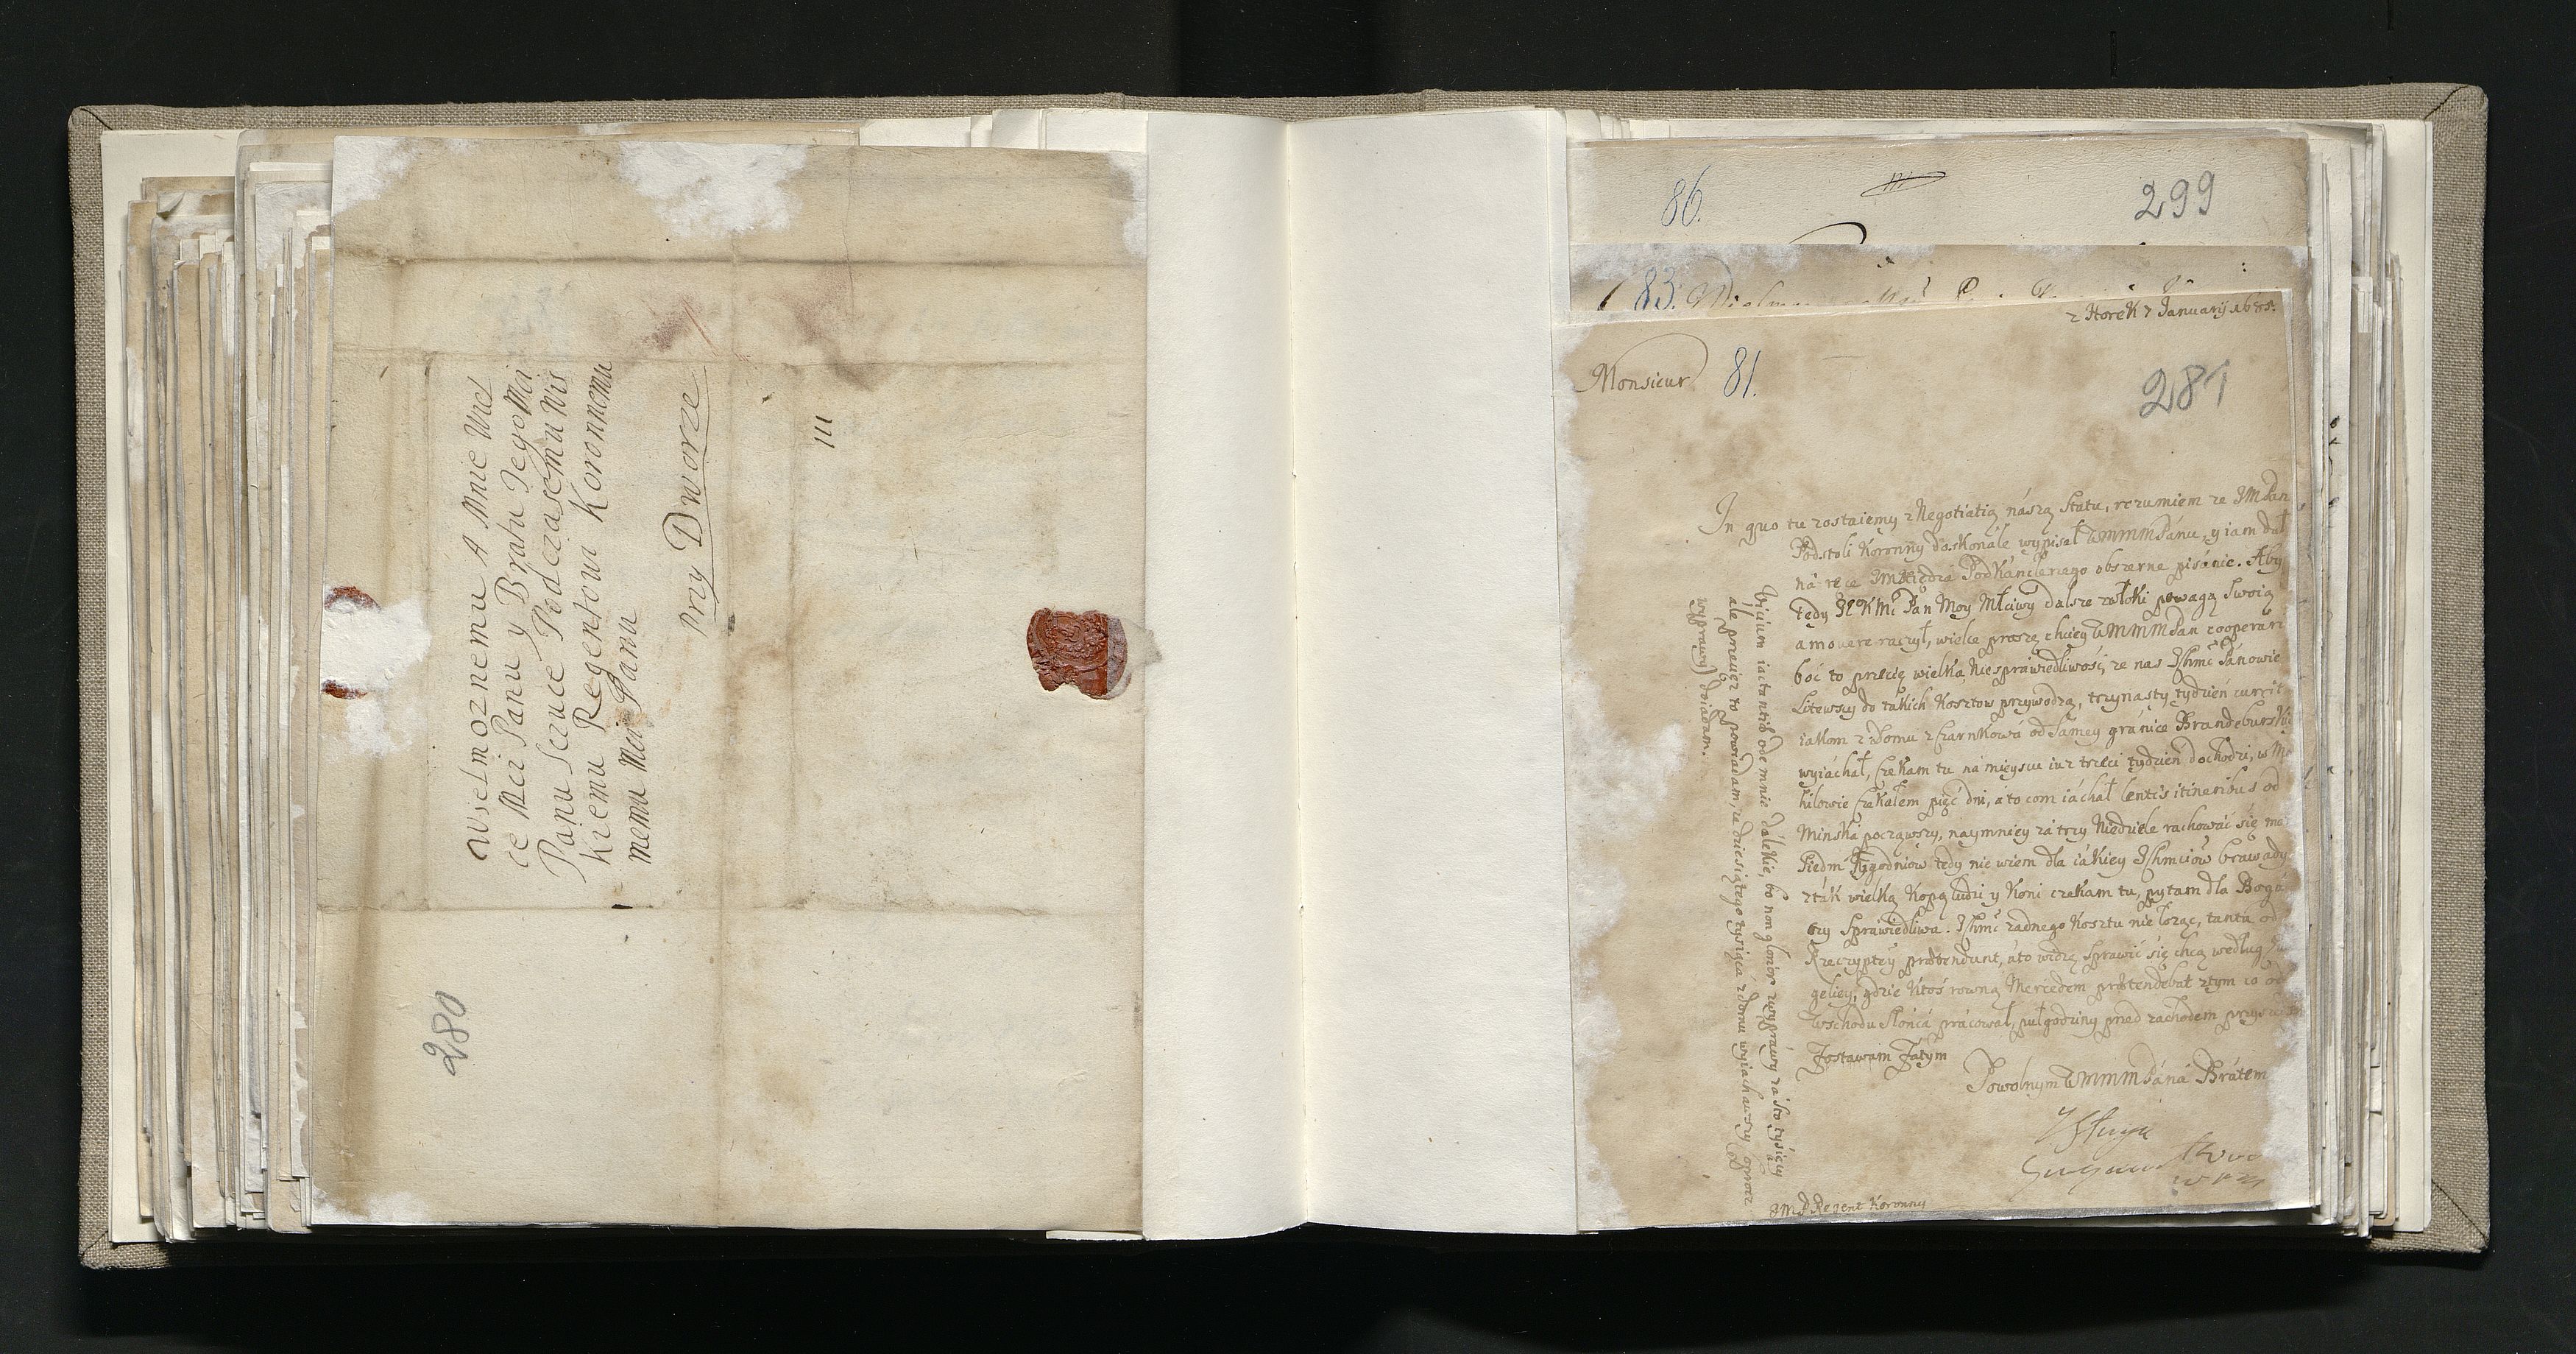 Wielmoznemu A Mnie Wiel
ce Mci Panu y Bratu Jego Mci
Panu Szczuce Podczasemu Wis
kiemu Regentowi Koronnemu
memu Mci Panu
Przy Dworze
III
280
86.
299
83.
z Horek 7 Januarij 1685.
Monsieur
81.
281
In quo tu zostaiemy z Negotiatią nászą Statu, rozumiem ze JMPan
Podstoli Koronny doskonále wypisał WMMMPánu, y iam dał
ná ręce JMXiędzá Podkánclerzego obszerne pisánie. Aby
tedy JKMć Pan Moy Młciwy dalsze zwłoki powagą Swoią
amovere raczył, wielce proszę chciey WMMMPan cooperari
boć to przecię wielka niespráwiedliwość, ze nas Ichmć Pánowie
Litewscy do tákich kosztow przywodzą, trzynasty tydzień currit
iákom z Domu z Czarnkowá od Samey gránice Brandeburski
wyiáchał, czekam tu ná mieyscu iuz trzeci tydzień dochodzi, w Mo
hilowie czekałem pięć dni, á to com iáchał lentis itineribus od
Minská począwszy, naymniey zá trzy Niedziele ráchowáć się mo
Siedm Tygodniow tedy nie wiem dla iákiey Ichmciow brawady
z ták wielką kopą ludzi y koni czekam tu, pytam dla Bogá
czy Spráwiedliwa. Ichmć zadnego kosztu nie łoząc, tantum od
Rzeczyptey prætendunt, áto widzę spráwić się chcą według Ewá
geliey, gdzie ktoś rowną Mercedem prætendebat z tym co od
Wschodu Słońcá prácował, puł godziny przed zachodem przyszedszy
Zostawam Zátym
Powolnym WMMMPáná Brátem
y Sługą
JMP Regent Koronny
Vicium iactantiæ odemnie dálekie, bo non glorior z wypráwy zá sto tysięcy
ale przeciez to powiádam, ze dziesiątego tysiącá z domu wyiachawszy oprocz
wypráwy doiádam.